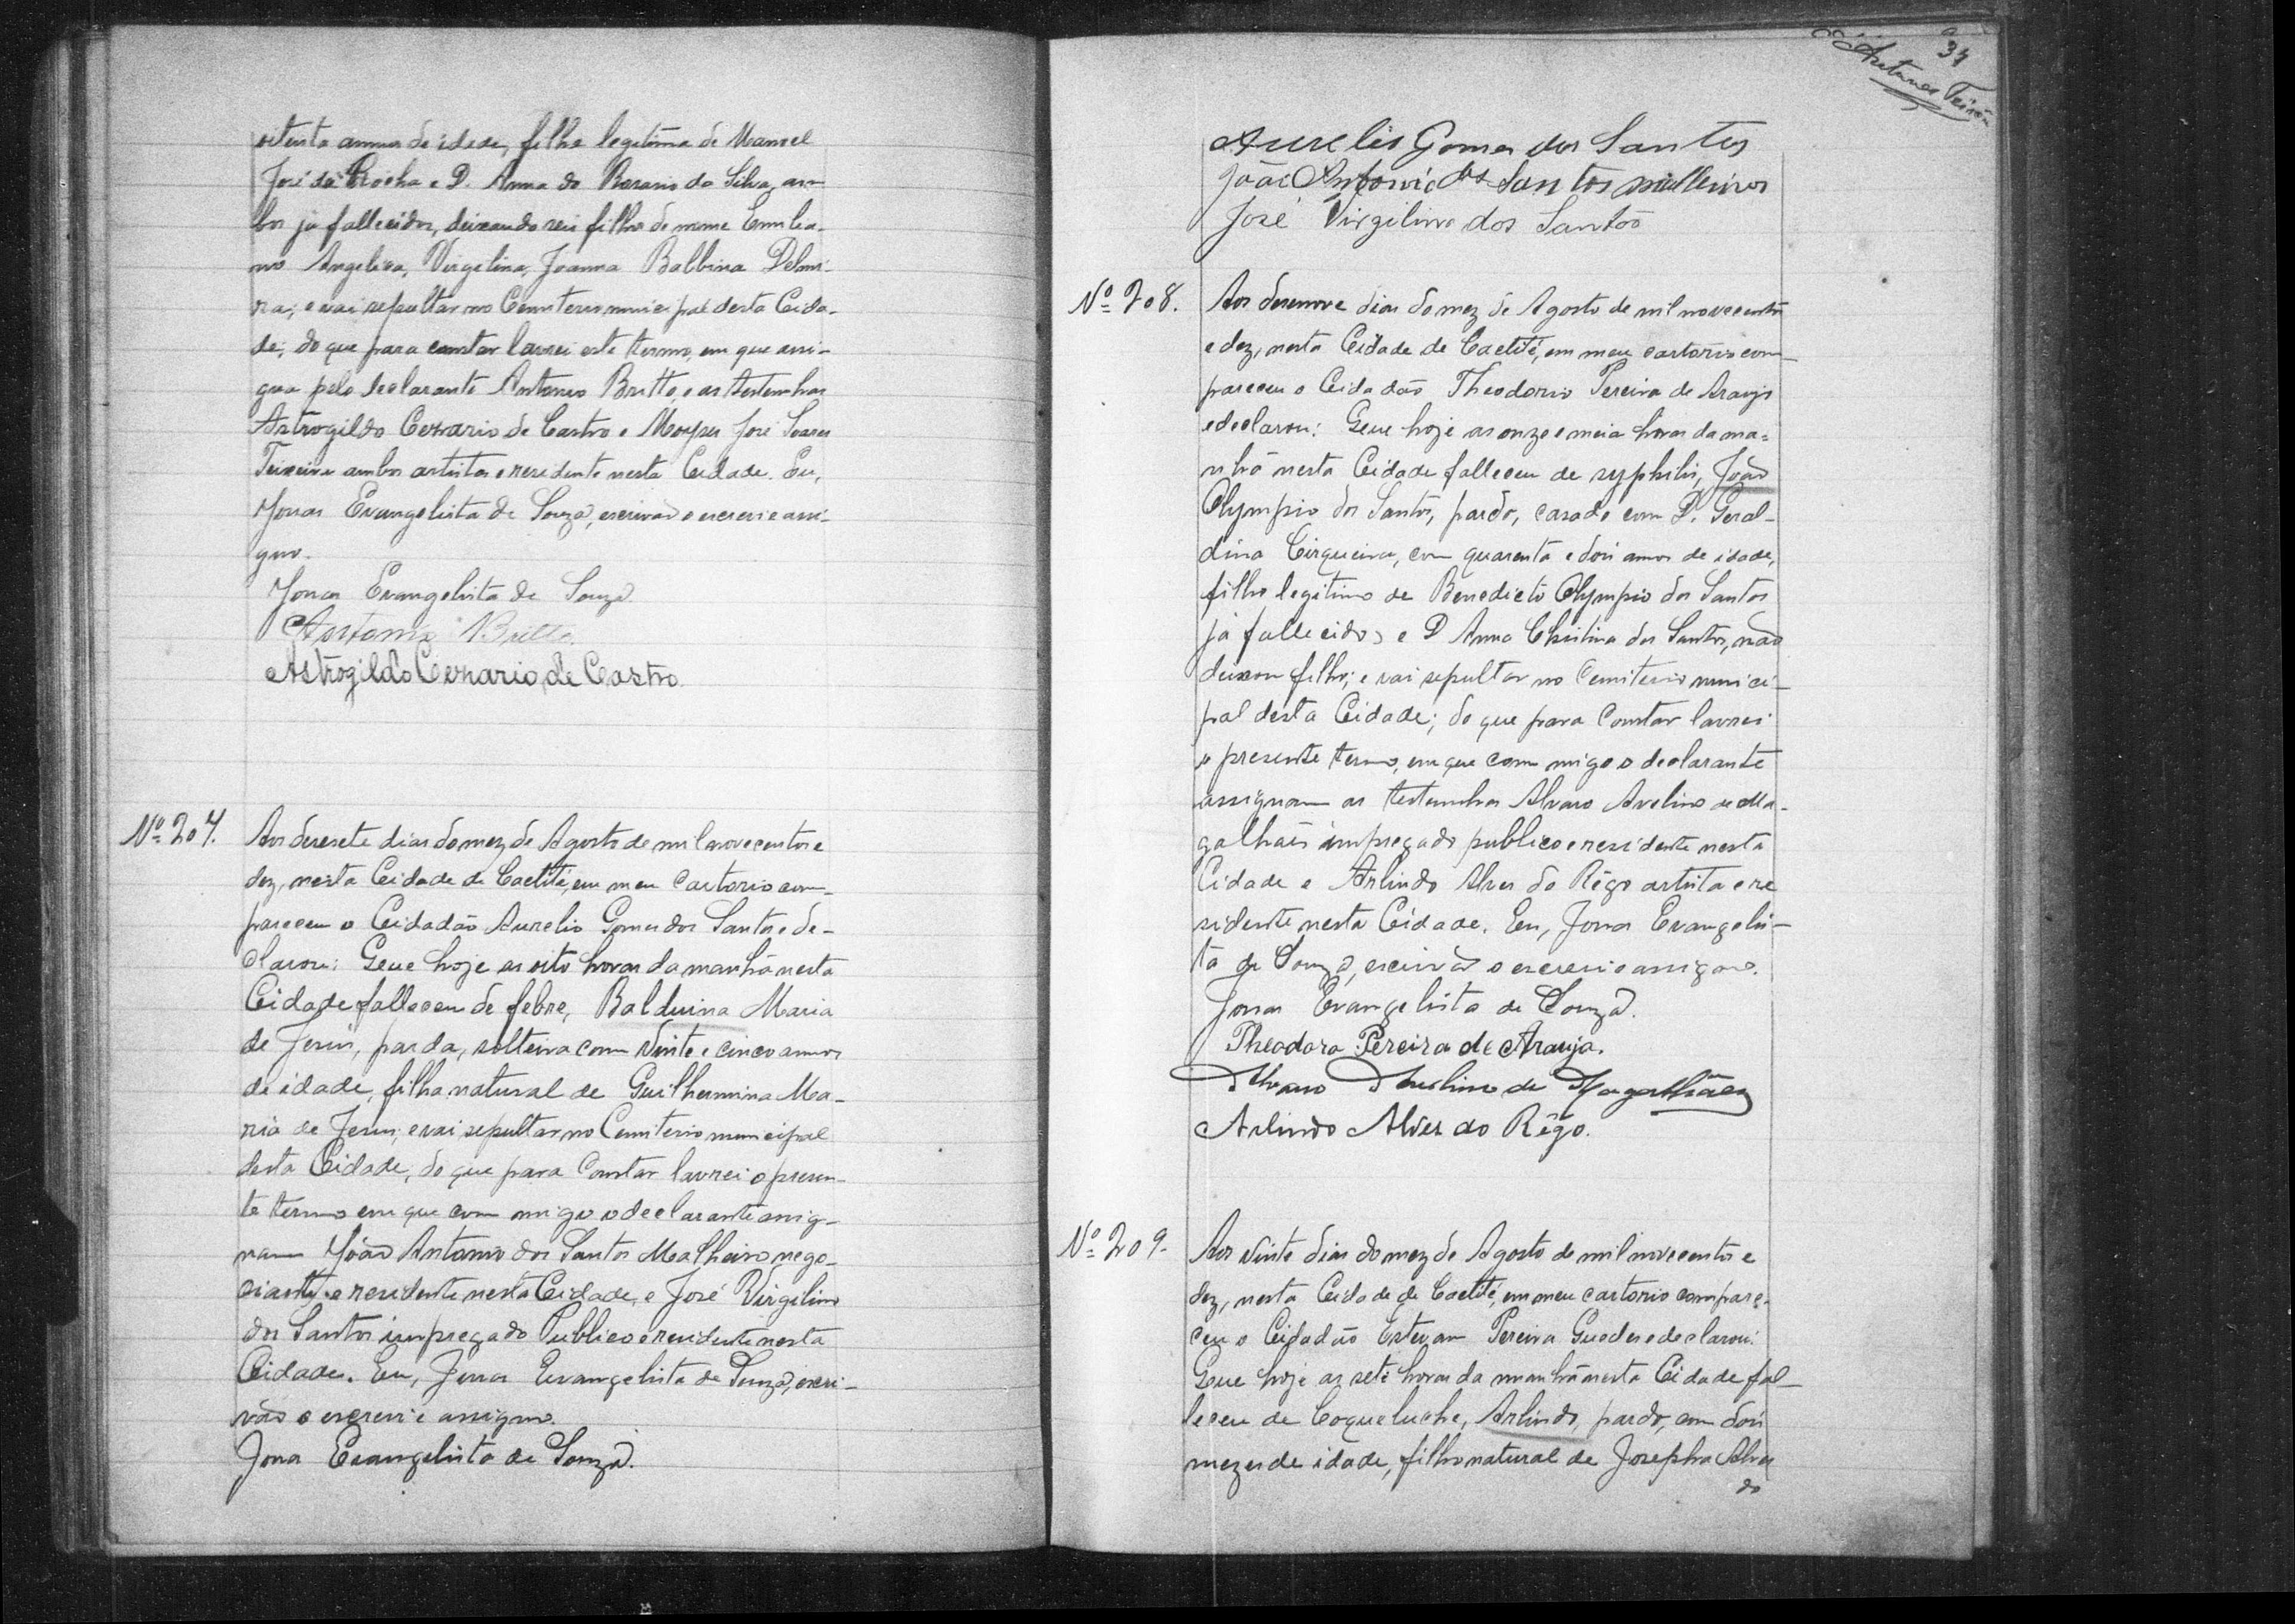 oitenta annos de idade, filha legitima de Manoel
José da Rocha e D. Anna do Rosario da Silva, am-
bos já fallecidos, deixando seis filhos de nome Emilia-
no Angelica, Virgelina, Joanna Balbina Delmi-
ra; e vai sepultar no Cemiterio municipal desta Cida-
de; do que para constar lavrei este termo, em que assi-
gna pelo declarante Antonio Britto, e as testemunhas
Astrogildo Cezario de Castro e Moyses José Soares
Teixeira ambos artistas e residente nesta Cidade. Eu,
Jonas Evangelista de Souza, escrivão o escrevi e assi-
gno.
Jonas Evangelista de Souza.
Antonio Britto.
Astrogildo Cezario de Castro.
Nº 207. Aos desesete dias do mez de Agosto de mil novecentos e
dez, nesta Cidade de Caetité, em meu Cartorio com-
pareceu o Cidadão Aurelio Gomes dos Santos e de-
clarou: Que hoje as oito horas da manhã nesta
Cidade falleceu de febre, Balduina Maria
de Jesus, parda, solteira com vinte e cinco annos
de idade, filha natural de Guilhermina Ma-
ria de Jesus; e vai sepultar no Cemiterio municipal
desta Cidade, do que para Constar lavrei o presen-
te termo em que com migo o declarante assig-
nam João Antonio dos Santos Malheiros nego-
ciante e residente nesta Cidade, e José Virgilino
dos Santos impregado Publico e residente nesta
Cidade. Eu, Jonas Evangelista de Souza, escri-
vão o escrevi e assigno.
Jonas Evangelista de Souza.
34
Antunes Teixeira
Aurelio Gomes dos Santos
João Antonio dos Santos Malleiros
José Virgilino dos Santos
Nº 208. Aos desenove dias do mez de Agosto de mil novecentos
e dez, nesta Cidade de Caetité, em meu cartorio com-
pareceu o Cidadão Theodorio Pereira de Araujo
e declarou: Que hoje as onze e meia horas da ma-
nhã nesta Cidade falleceu de syphilis, João
Olympio dos Santos, pardo, casado com D. Geral-
dina Cirqueira, com quarenta e dois annos de idade,
filho legitimo de Benedicto Olympio dos Santos
já fallecido, e D Anna Christina dos Santos, não
deixou filho; e vai sepultar no Cemiterio munici-
pal desta Cidade; do que para Constar lavrei
o presente termo, em que com migo o declarante
assignam as testemunhas Alvaro Avelino de Ma-
galhães impregado publico e residente nesta
Cidade e Arlindo Alves do Rêgo artista e re
sidente nesta Cidade. Eu, Jonas Evangelis-
ta de Souza, escrivão o escrevi e assigno.
Jonas Evangelista de Souza.
Theodoro Pereira de Araujo.
Alvaro Avelino de Magalhães
Arlindo Alves do Rêgo.
Nº 209. Aos vinte dias do mez de Agosto de mil novecentos e
dez, nesta Cidade de Caetité, em meu cartorio compare-
ceu o Cidadão Estevam Pereira Guedes e declarou:
Que hoje as sete horas da manhã nesta Cidade fal-
leceu de Coqueluche, Arlindo, pardo, com dois
mezes de idade, filho natural de Josepha Alves
do